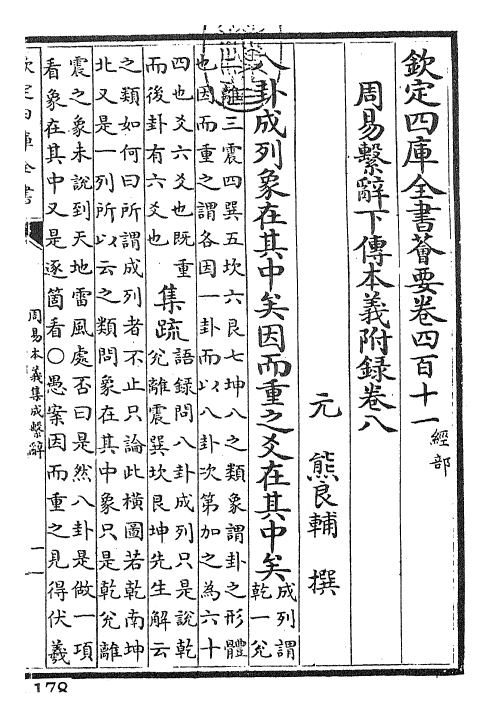 欽定四庫全書薈要卷四百十一 經部
周易繫辭下傳本義附録卷八
元 熊良輔 撰
八卦成列象在其中矣因而重之爻在其中矣 成列謂
乾一兊
離三震四巽五坎六艮七坤八之類象謂卦之形體
也因而重之謂各因一卦而以八卦次第加之為六十
四也爻六爻也既重
而後卦有六爻也
集疏 語録問八卦成列只是說乾
兊離震巽坎艮坤先生解云
之類如何曰所謂成列者不止只論此橫圖若乾南坤
北又是一列所以云之類問象在其中象只是乾兊離
震之象未說到天地雷風處否曰是然八卦是做一項
看象在其中又是逐箇看○愚案因而重之見得伏羲
欽定四庫全書
周易本義集成繫辭
一
178